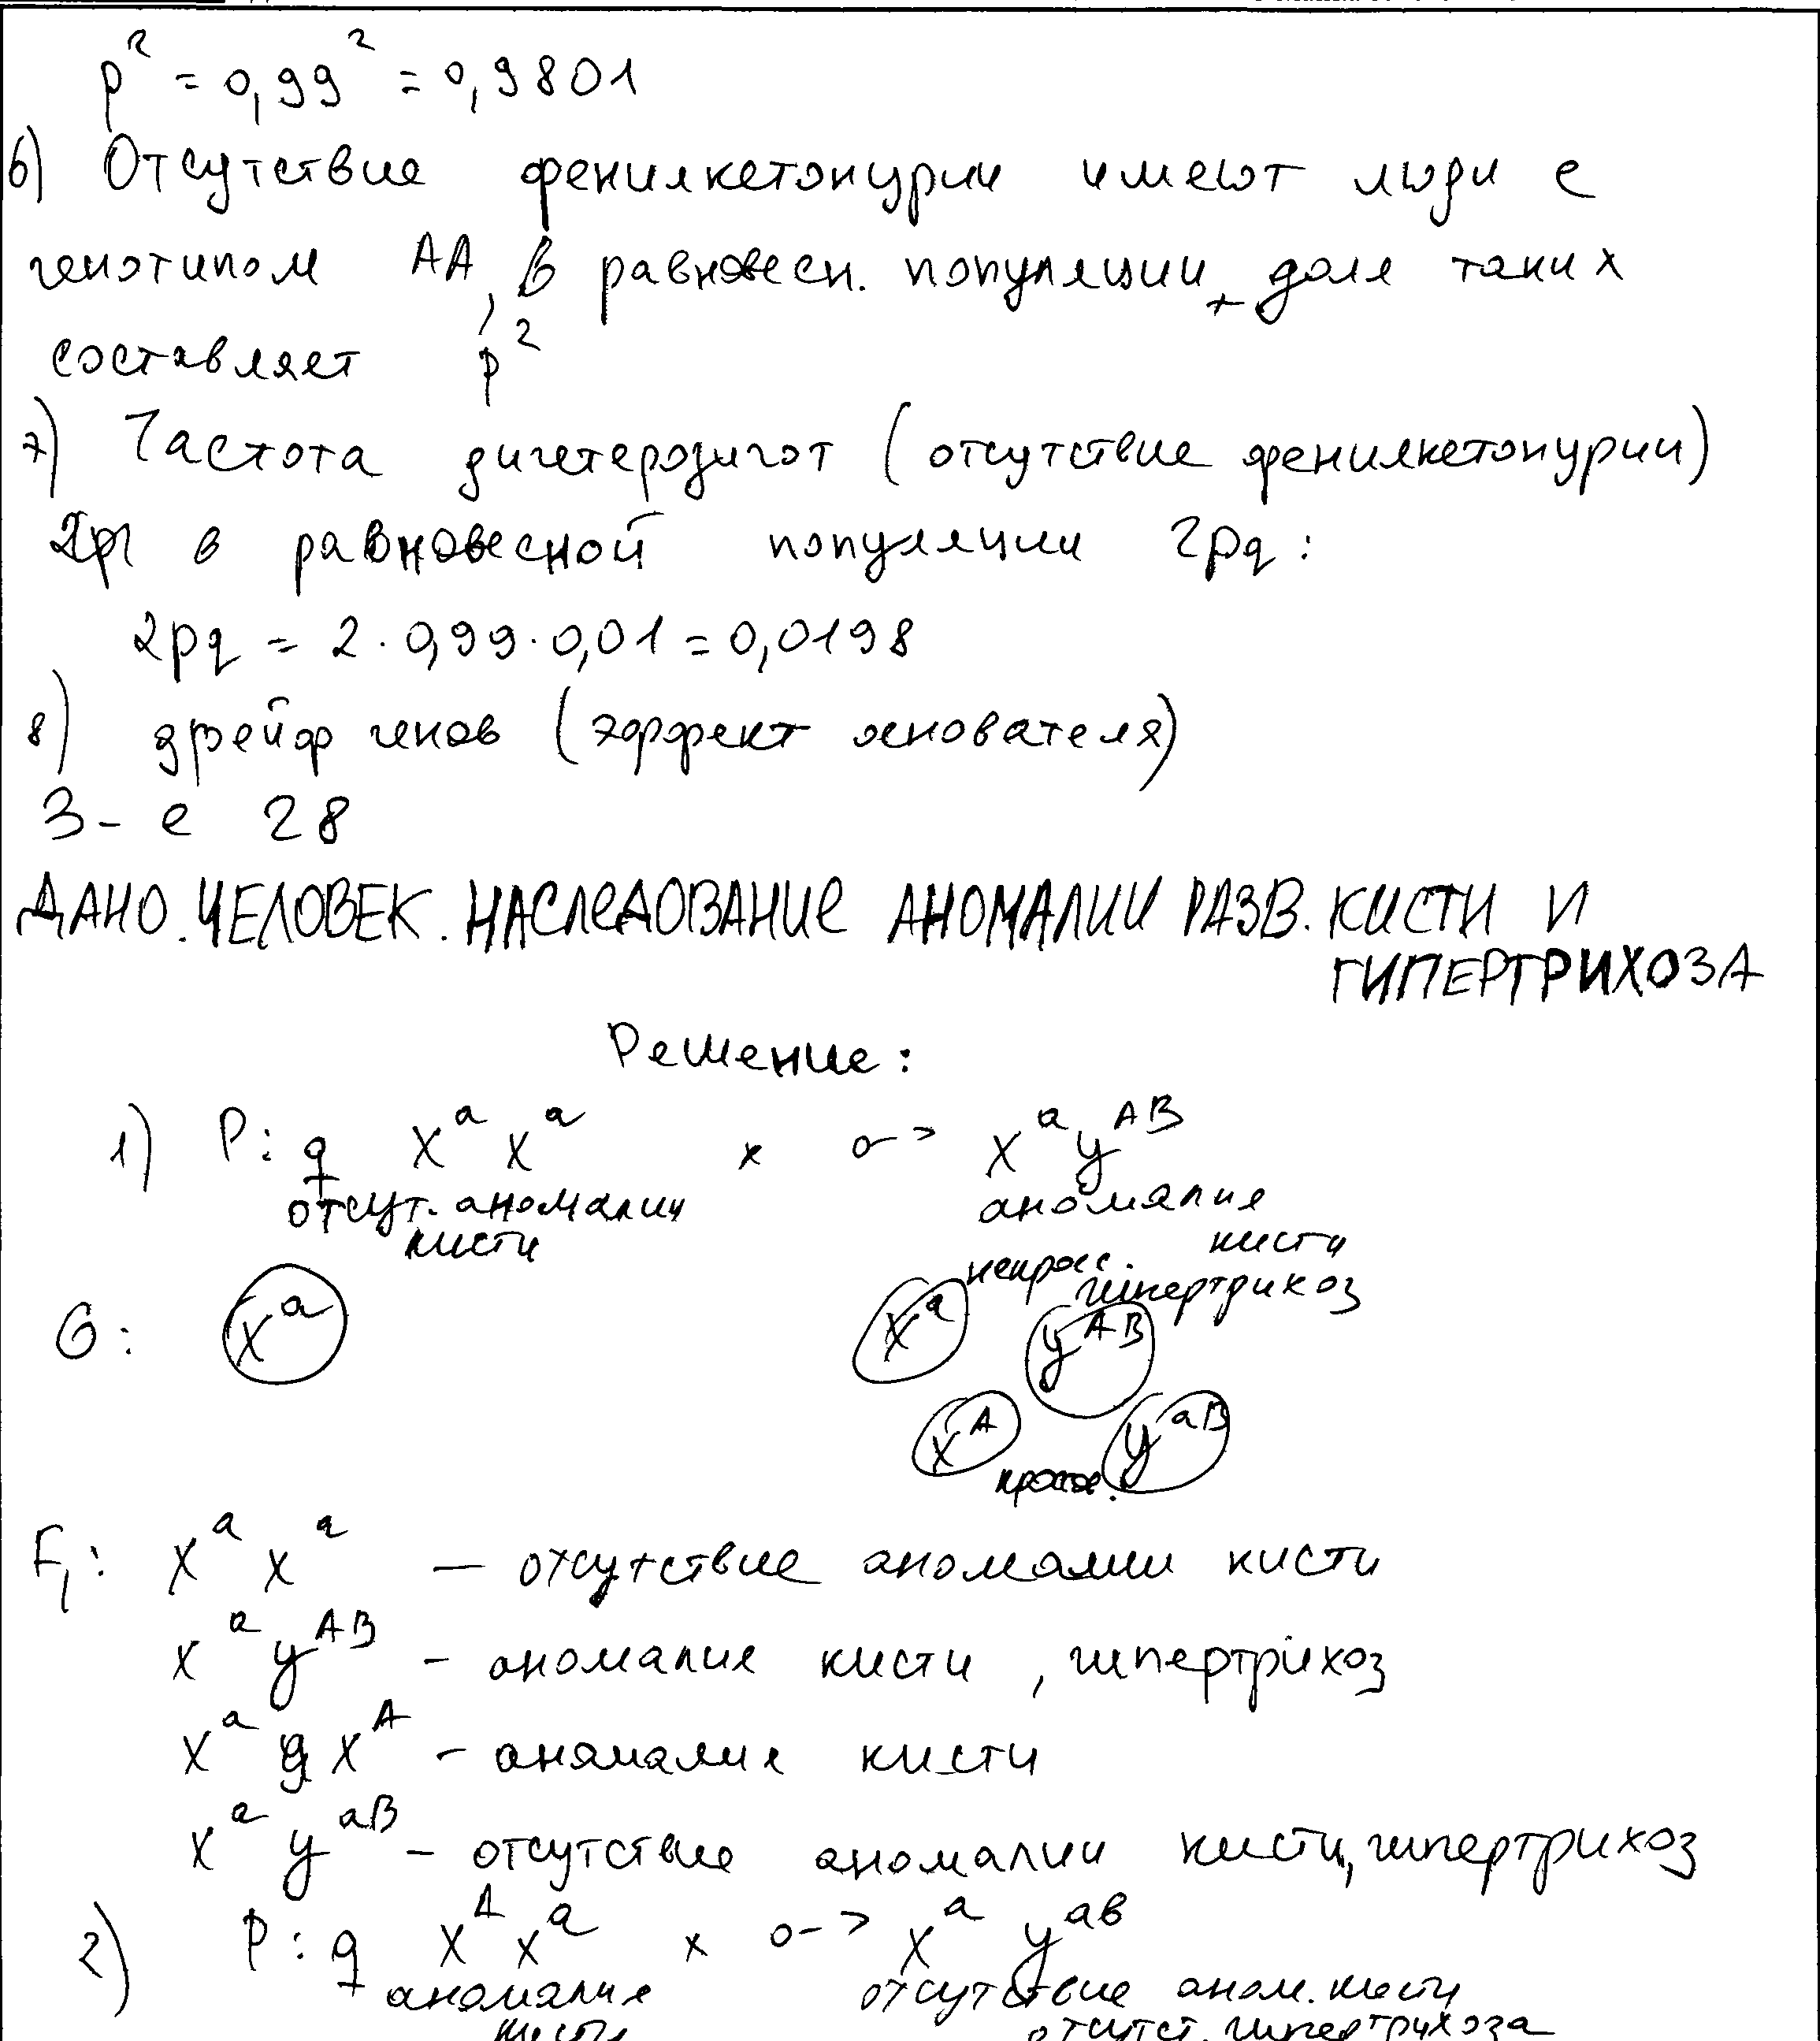 p² = 0,99² = 0,9801
6) Отсутствие фенилкетонурии имеют люди с
генотипом АА, в равновесн. популяции доля таких
составляет p²
7) Частота дигетерозигот (отсутствие фенилкетонурии)
в равновесной популяции 2pq:
2pq = 2 · 0,99 · 0,01 = 0,0198
8) дрейф генов (эффект основателя)
З-е 28
ДАНО. ЧЕЛОВЕК. НАСЛЕДОВАНИЕ АНОМАЛИИ РАЗВ. КИСТИ И
ГИПЕРТРИХОЗА
Решение:
1) P: ♀ Xᵃ Xᵃ × ♂ Xᵃ Yᴬᴮ
отсут. аномалии кисти аномалия кисти
гипертрихоз
G: Xᵃ некросс. Xᵃ Yᴬᴮ
Xᴬ Yᵃᴮ
кросс.
F₁: Xᵃ Xᵃ — отсутствие аномалии кисти
Xᵃ Yᴬᴮ – аномалие кисти, гипертрихоз
Xᵃ Xᴬ – анамалия кисти
Xᵃ Yᵃᴮ – отсутствие аномалии кисти, гипертрихоз
2) P: ♀ Xᴬ Xᵃ × ♂ Xᵃ Yᵃᵇ
аномалие кисти отсутствие аном. кисти
отсутст. гипертрихоза